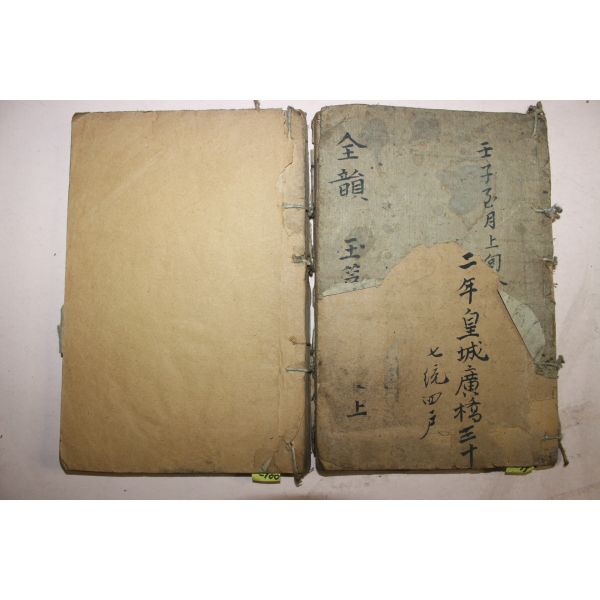 壬子至月上旬
二年皇城廣橋三十
七統四戶
全韻
玉
上